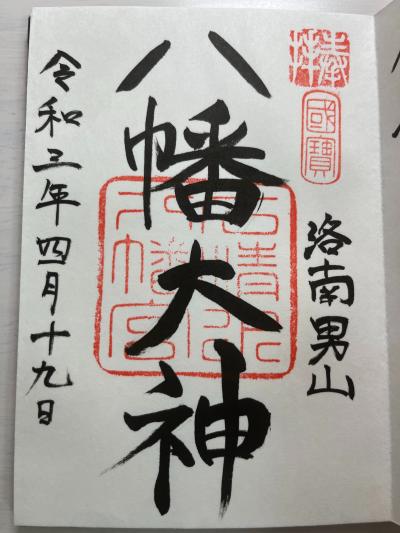 奉拝
國寶
洛南男山
八幡大神
石清水八幡宮
令和三年四月十九日